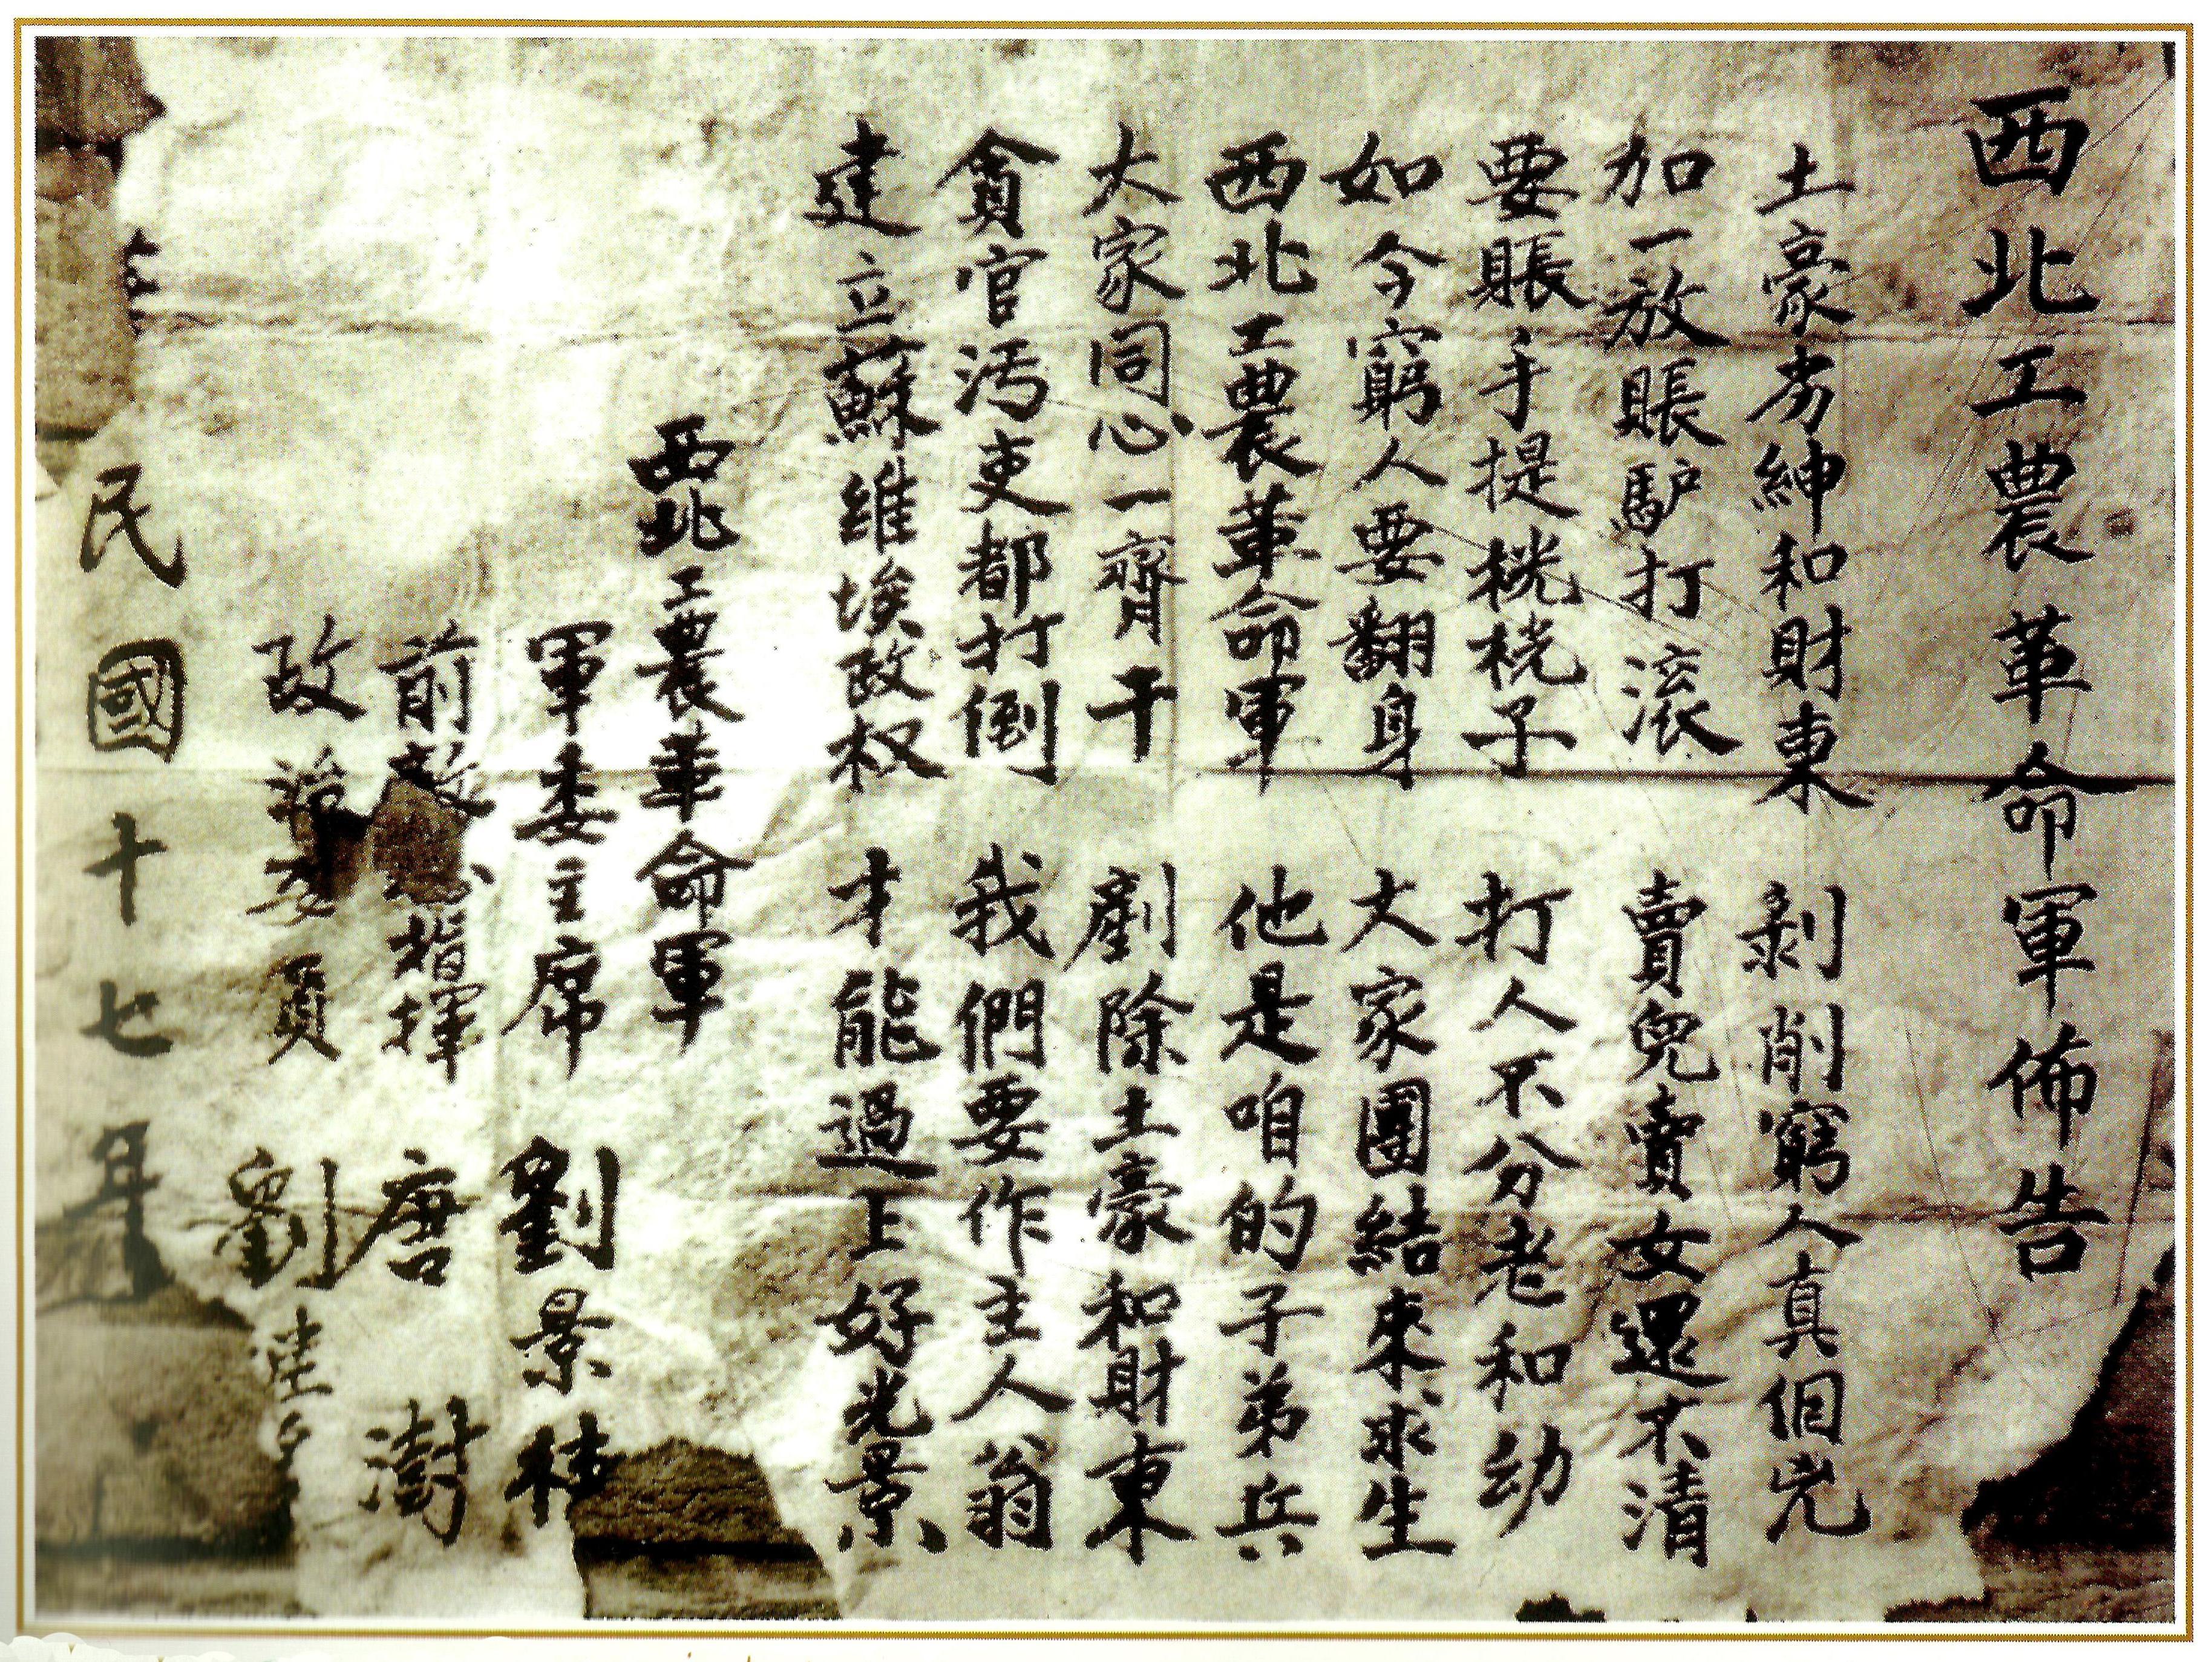 西北工農革命軍佈告
土豪劣紳和財東 剥削窮人真個兇
加一放賬馿打滚 賣兒賣女還不清
要賬手提桄桄子 打人不分老和幼
如今窮人要翻身 大家團結來求生
西北工農革命軍 他是咱的子弟兵
大家同心一齊干 剷除土豪和財東
貪官污吏都打倒 我們要作主人翁
建立蘇維埃政权 才能過上好光景
西北工農革命軍
軍委主席 劉景桂
前敵总指揮 唐澍
政 委員 劉
民國十七年